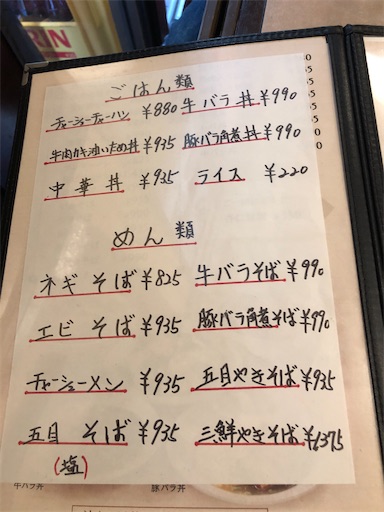 ごはん類
チャーシューチャーハン ¥880 牛バラ丼 ¥990
牛肉カキ油いため丼 ¥935 豚バラ角煮丼 ¥990
中華丼 ¥935 ライス ¥220
めん類
ネギそば ¥825 牛バラそば ¥990
エビそば ¥935 豚バラ角煮そば ¥990
チャーシューメン ¥935 五目やきそば ¥935
五目そば ¥935 三鮮やきそば ¥1375
(塩)
牛バラ丼 豚バラ丼